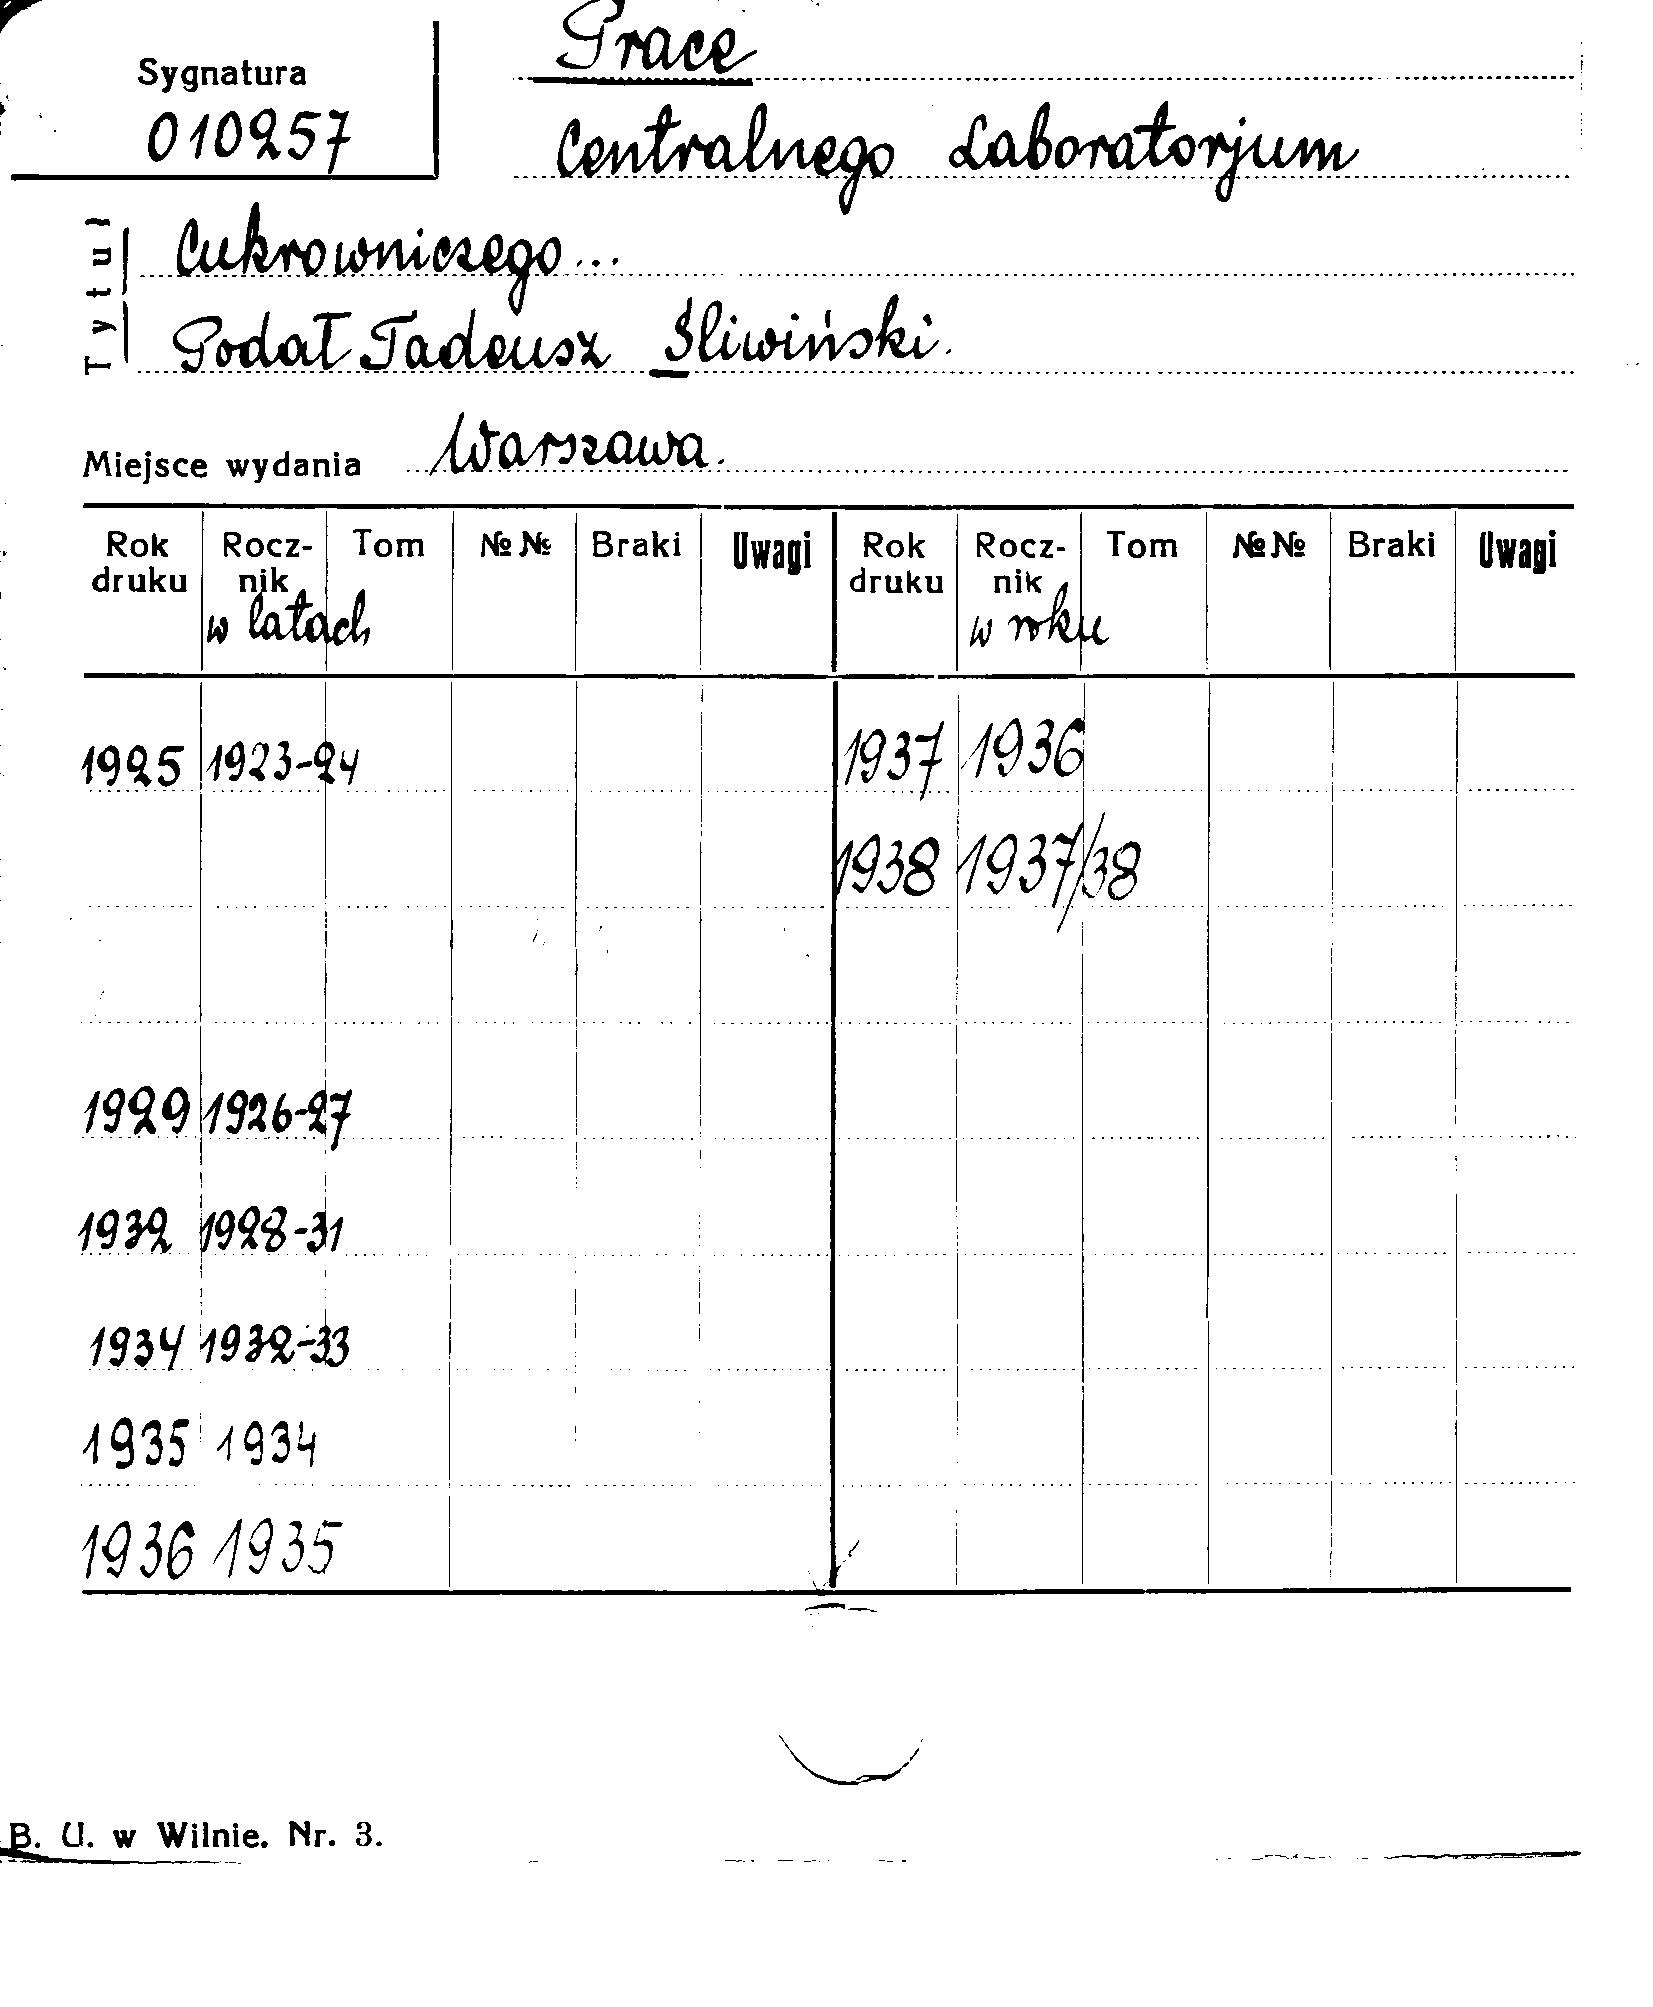 Sygnatura
010257
Prace
Centralnego Laboratorjum
Tytuł
Cukrowniczego...
Podał Tadeusz Śliwiński.
Miejsce wydania Warszawa.
Rok druku Rocz-nik w latach Tom №№ Braki Uwagi Rok druku Rocz-nik w roku Tom №№ Braki Uwagi
1925 1923-24 1937 1936
1938 1937/38
1929 1926-27
1932 1928-31
1934 1932-33
1935 1934
1936 1935
B. U. w Wilnie. Nr. 3.